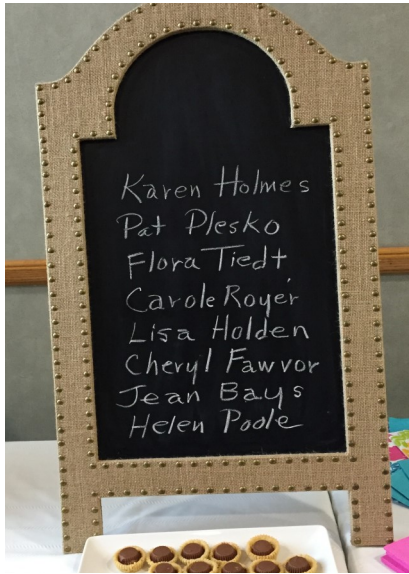 Karen Holmes
Pat Plesko
Flora Tiedt
Carole Royer
Lisa Holden
Cheryl Fawvor
Jean Bays
Helen Poole